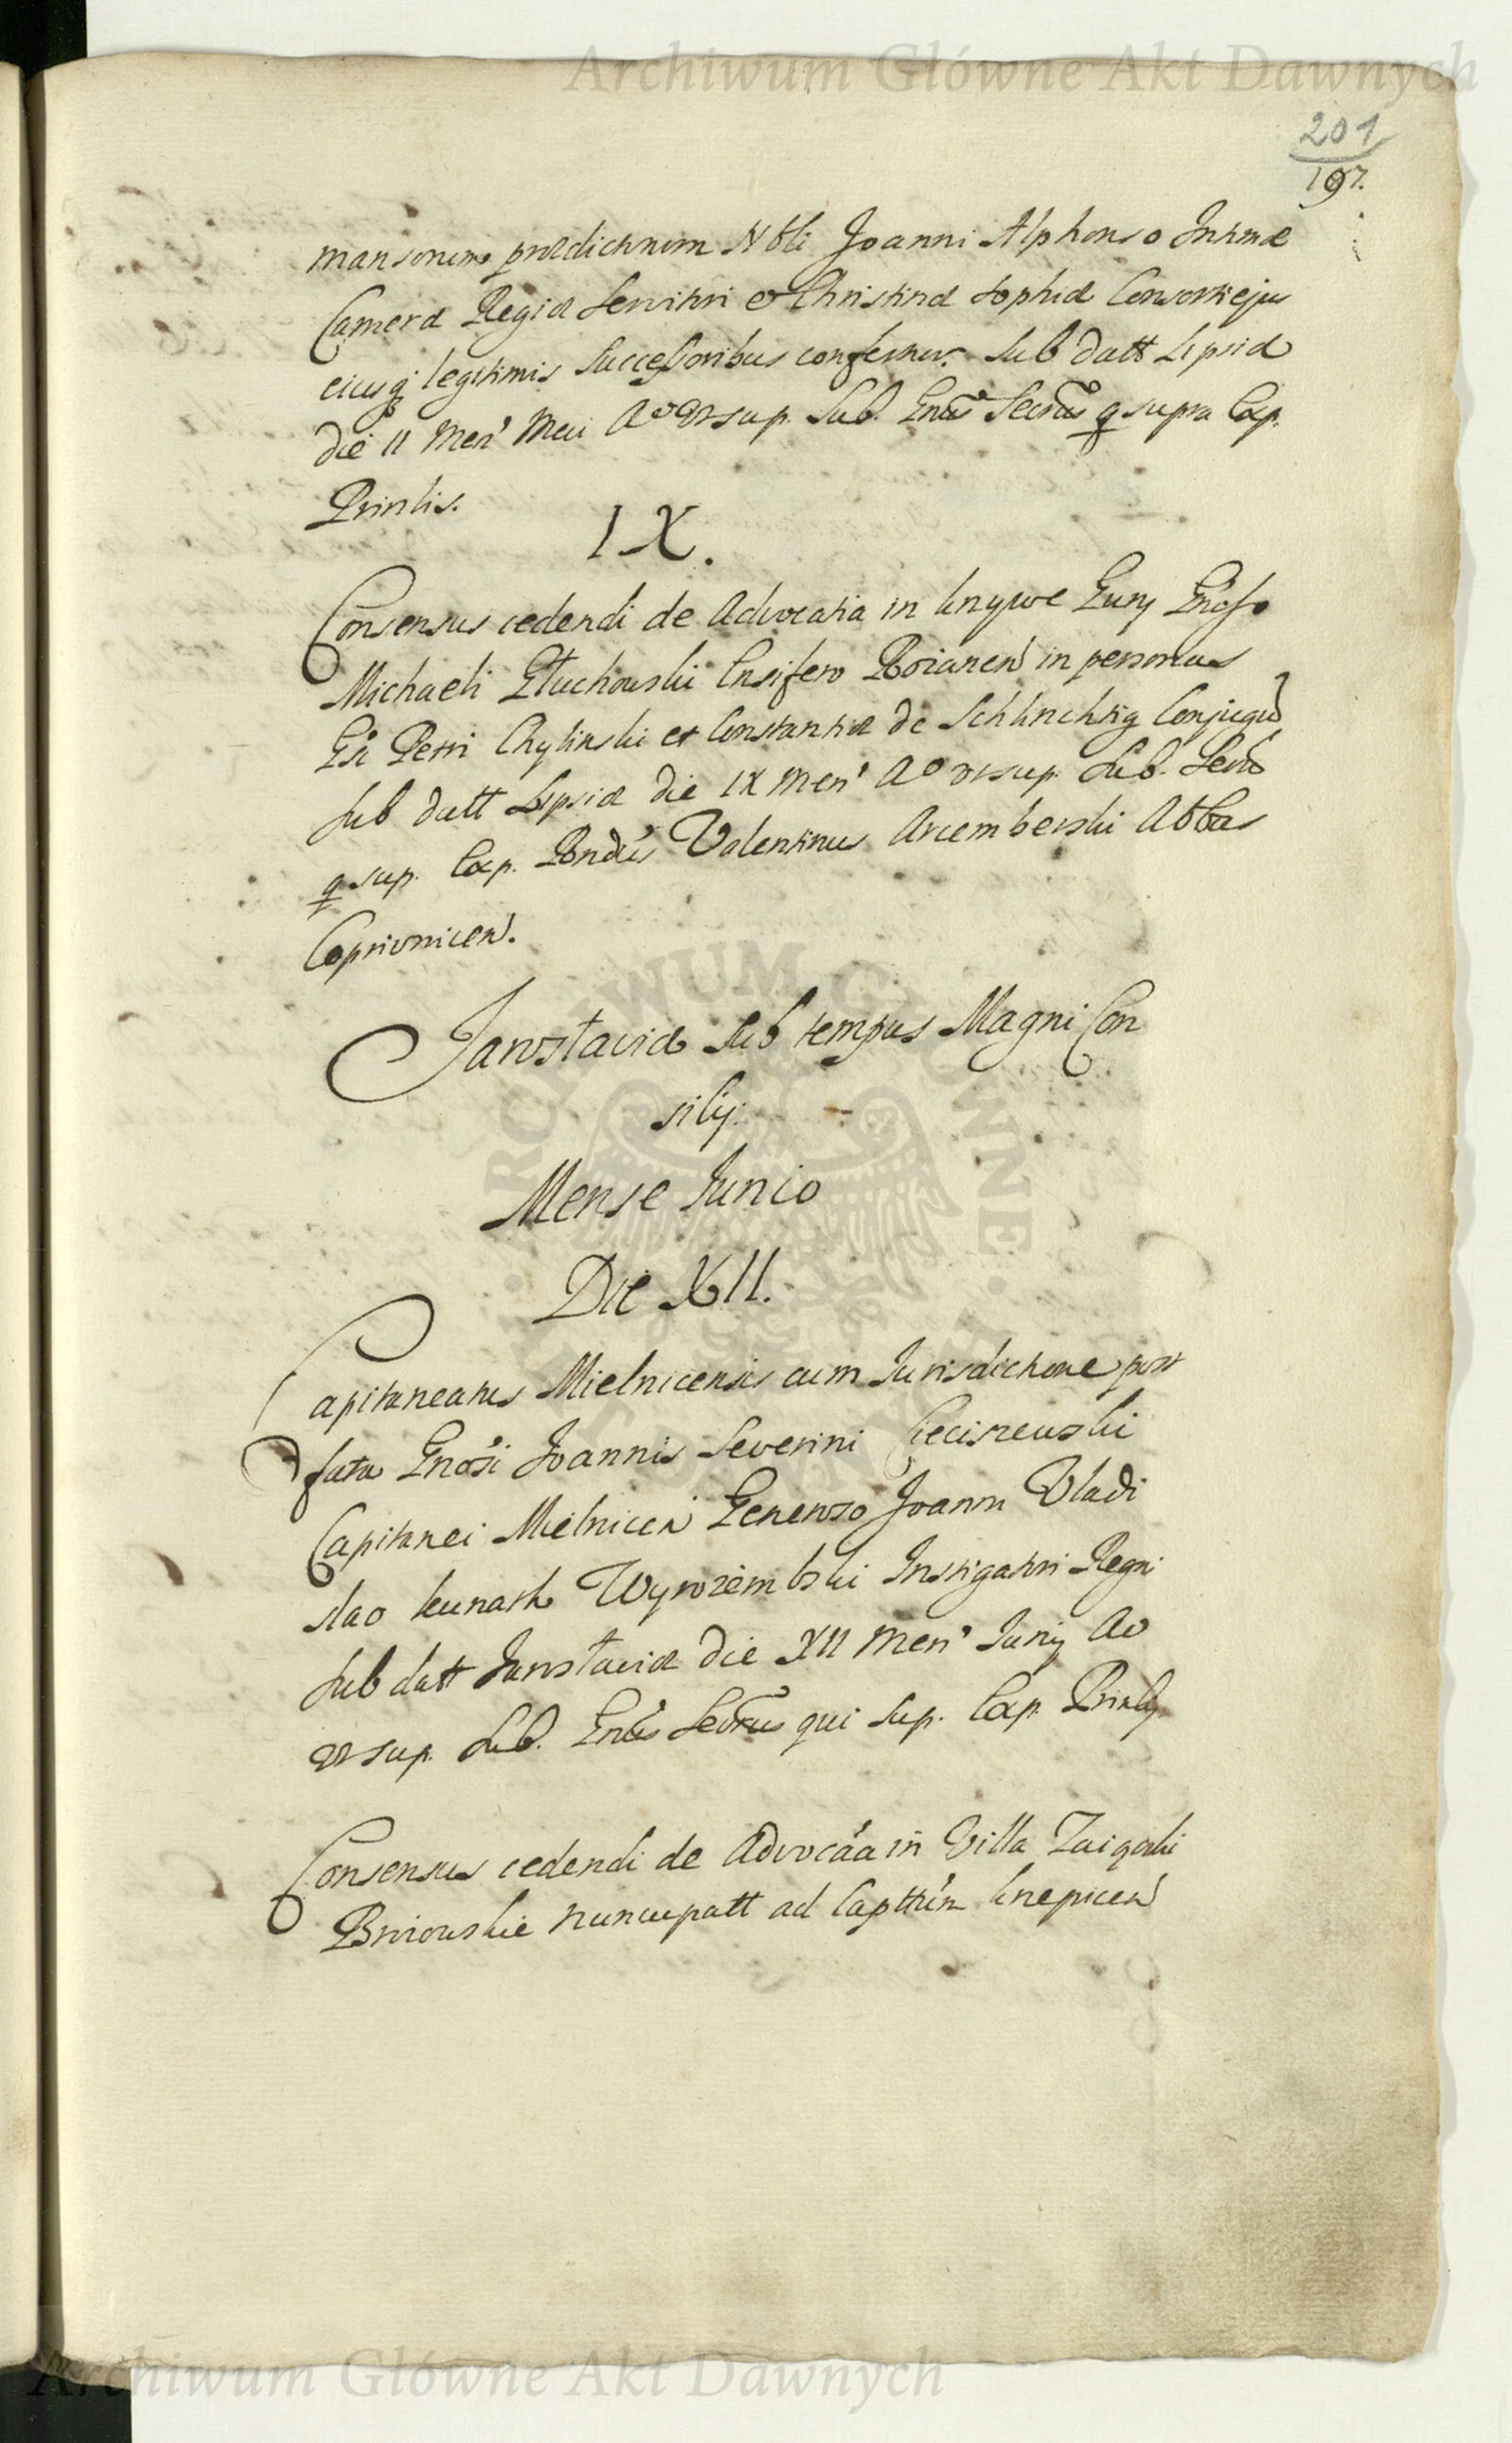 Archiwum Główne Akt Dawnych
201
197.
mansonum prædictnum Nbli Joanni Alphonso Intimæ
Cameræ Regiæ Servitori et Christinæ Sophiæ Consorti ejus
eiusq; legitimis Successoribus confertur. Sub datt Lipsiæ
die 11 Men' Maii Ao ut sup. Sub. Gnūs Secrūs q supra Cap.
Prinlis.
IX.
Consensus cedendi de Advocatia in Gnoso
Michaeli Głuchowski Ensifero Rozanen in personas
Petri Chylinski et Constantiæ de Schlinchtig Conjugū
Sub datt Lipsiæ die IX Men' Ao ut sup. Sub. Secrūs
q sup. Cap. Rndūs Valentinus Arcemberski Abbas
Coprivnicen.
Jarosłaviæ sub tempus Magni Con
silij.
Mense Junio
Die XII.
Capitaneatus Mielnicensis cum Jurisdictione post
fata Gnosi Joannis Severini Cieciszewski
Capitanei Mielnicen Generoso Joanni Vladi
slao kunath Wyrozembski Instigatori Regni
Sub datt Jarosłaviæ die XII Men' Junij Ao
ut sup. Sub. Gnūs Secrūs qui sup. Cap. Prinlis
Consensus cedendi de Advocāa in Villa
nuncupatt ad Capttūm
Archiwum Główne Akt Dawnych